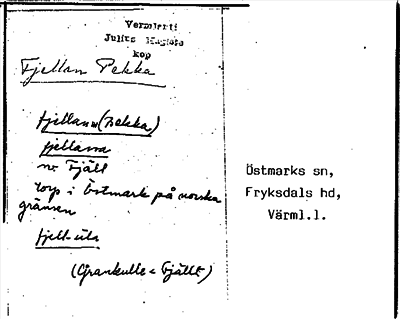 Vermlarti
Julius Mägiste
kop
Fjellan Pekka
fjellan (Bekka)
fjellassa
nv Fjäll
torp i Östmark på norska
gränsen
fjell-üla
(Grankulle < Fjällt)
Östmarks sn,
Fryksdals hd,
Värml.l.